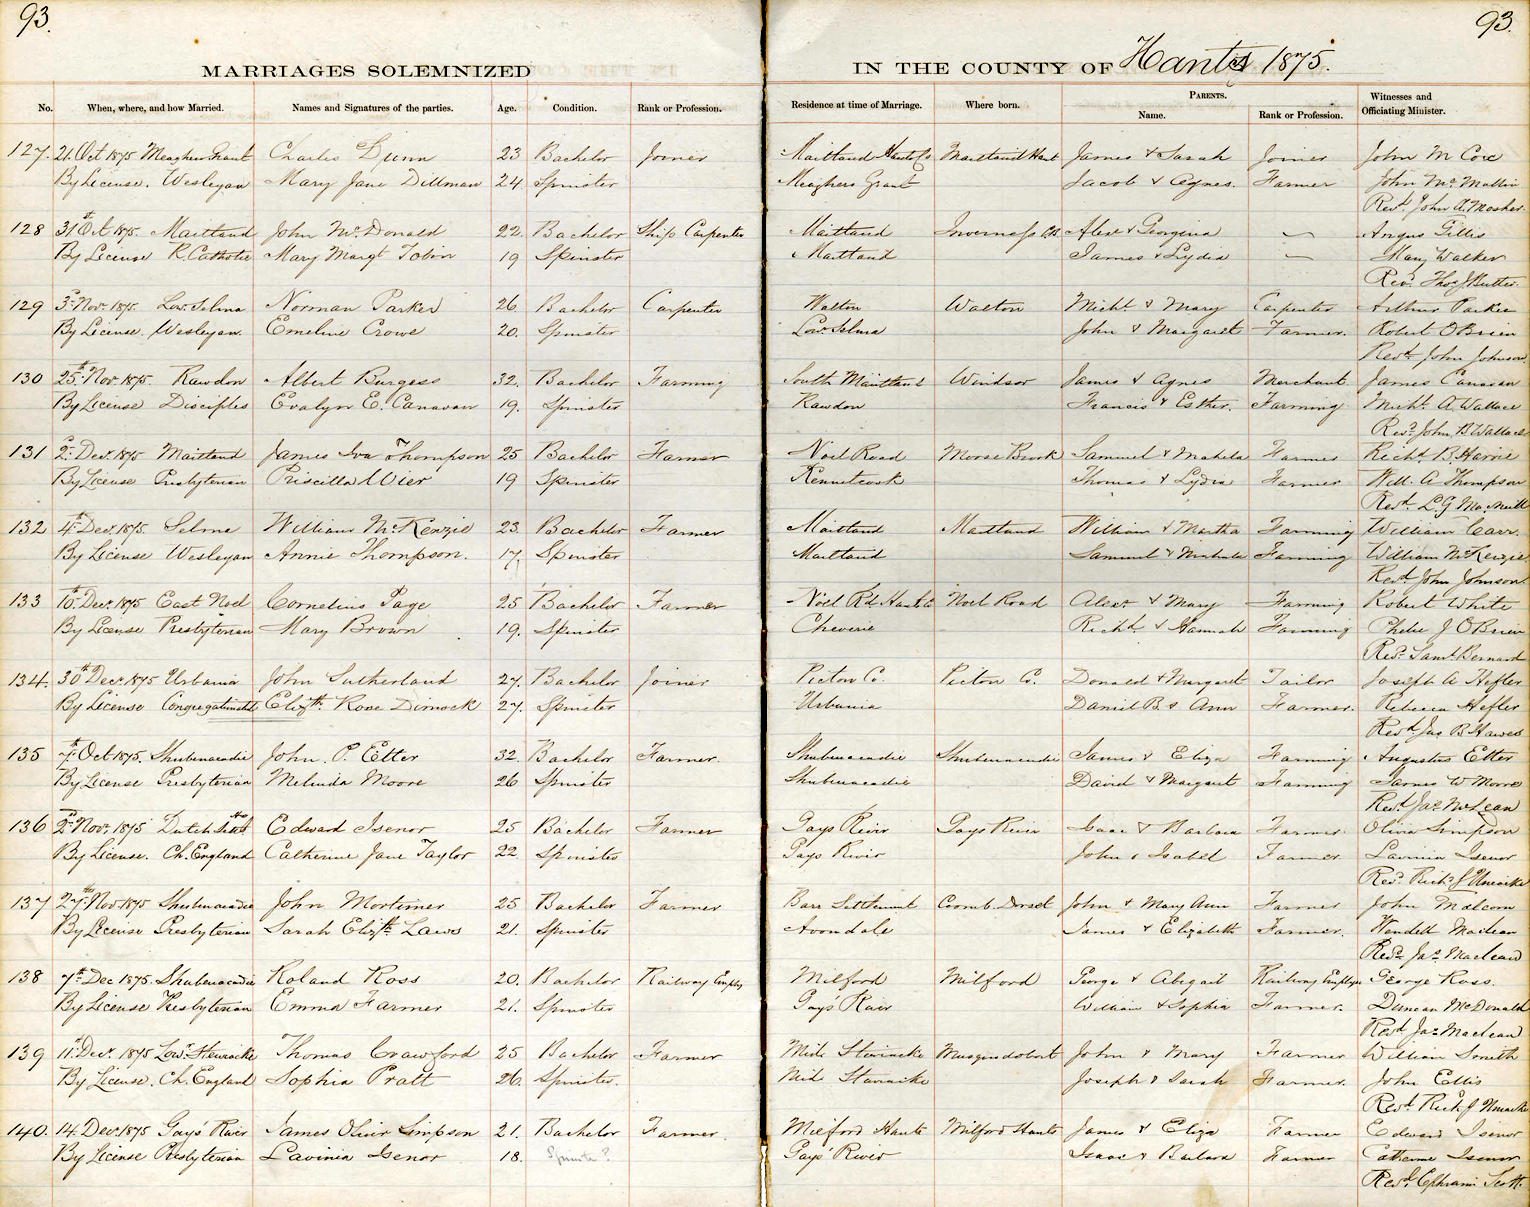 93.
93.
MARRIAGES SOLEMNIZED
IN THE COUNTY OF Hants 1875.
No. When, where, and how Married. Names and Signatures of the parties. Age. Condition. Rank or Profession. Residence at time of Marriage. Where born. PARENTS. Name. Rank or Profession. Witnesses and Officiating Minister.
127. 21. Oct 1875 Meaghers Grant Charles Dunn 23 Bachelor Joiner Maitland Hants Co Maitland Hants James & Sarah Joiner John M Cox
By License. Wesleyan Mary Jane Dillman 24 Spinster Meaghers Grant Jacob & Agnes. Farmer John McMullin
Revd. John A. Mosher
128 31st Oct 1875. Maitland John McDonald 22. Bachelor Ship Carpenter Maitland Inverness C.B. Alex & Georgina Angus Gillis
By License R. Catholic Mary Margt Tobin 19 Spinster Maitland James & Lydia Mary Walker
Revd. Thos J Butler.
129 3d Novr. 1875. Lowr. Selma Norman Parker 26. Bachelor Carpenter Walton Walton Michl. & Mary Carpenter Arthur Parker
By License. Wesleyan. Emeline Crowe 20. Spinster Lowr. Selma John & Margaret Farmer. Robert OBrien
Revd. John Johnson
130 25th Novr 1875. Rawdon Albert Burgess 32. Bachelor Farming South Maitland Windsor James & Agnes Merchant James Canavan
By License Disciples Evalyn E. Canavan 19. Spinster Rawdon Francis & Esther. Farming Michl. A. Wallace
Revd. John B Wallace
131 2d Decr. 1875 Maitland James Iva Thompson 25 Bachelor Farmer Noel Road Moose Brook Samuel & Mahela Farmer Richd. B. Harvie
By License Presbyterian Priscilla Wier 19 Spinster Kennetcook Thomas & Lydia Farmer Will. A Thompson
Revd. L. G. Macneill
132 4th Decr. 1875. Selma William McKenzie 23. Bachelor Farmer Maitland Maitland William & Martha Farming William Carr.
By License Wesleyan Annie Thompson. 17, Spinster Maitland Samuel & Farming William McKenzie
Revd. John Johnson
133 10th Decr. 1875 East Noel Cornelius Page 25 Bachelor Farmer Noel Rd. Hants Co Noel Road Alexr. & Mary Farming Robert White
By License Presbyterian Mary Brown 19. Spinster Cheverie Richd. & Hannah Farming Phebe J OBrien
Revd. Saml. Bernard
134. 30th Decr. 1875 Urbania John Sutherland 27. Bachelor Joiner Picton Co. Picton Co. Donald & Margaret Tailor Joseph A Hefler
By License Congregationalist Elizth. Rose Dimock 27. Spinster Urbania Daniel B. & Ann Farmer. Rebecca Hefler
Revd Jas B Hawes
135 7th Oct 1875. Shubenacadie John P. Etter 32 Bachelor Farmer. Shubenacadie Shubenacadie James & Eliza Farming Augustus Etter
By License Presbyterian Melinda Moore 26 Spinster Shubenacadie David & Margaret Farming James W Moore
Revd Jas McLean
136 2d Novr. 1875 Dutch Settlt Edward Isenor 25 Bachelor Farmer Gays River Gays River Isaac & Barbara Farmer Olivia Simpson
By License. Ch. England Catherine Jane Taylor 22. Spinster Gays River John & Isabel Farmer Lavinia Isenor
Revd. Richd. J Uniacke
137 27th Novr 1875 Shubenacadie John Mortimer 25 Bachelor Farmer Bars Settlement Coomb. Dorset John & Mary Ann Farmer John Malcom
By License Presbyterian Sarah Elizth. Laws 21. Spinster Avondale James & Elizabeth Farmer. Wendell Maclean
Revd. Jas Maclean
138 7th Dec 1875. Shubenacadie Roland Ross 20. Bachelor Railway Employ Milford Milford George & Abigail Railway Employ George Ross.
By License Presbyterian Emma Farmer 21. Spinster Gay's River William & Sophia Farmer. Duncan McDonald
Revd Jas Maclean
139 11th Decr. 1875 Lowr. Stewiacke Thomas Crawford 25 Bachelor Farmer Mid. Stewiacke Musquodoboit John & Mary Farmer William Smith
By License. Ch. England Sophia Pratt 26. Spinster. Mid. Stewiacke Joseph & Sarah Farmer. John Ellis
Revd Richd J Uniacke
140. 14. Decr. 1875 Gays' River James Oliver Simpson 21. Bachelor Farmer. Milford Hants Milford Hants James & Eliza Farmer Edward Isenor
By License Presbyterian Lavinia Isenor 18. Spinster? Gays' River Isaac & Barbara Farmer Catherine Isenor
Revd. Ephraim Scott.